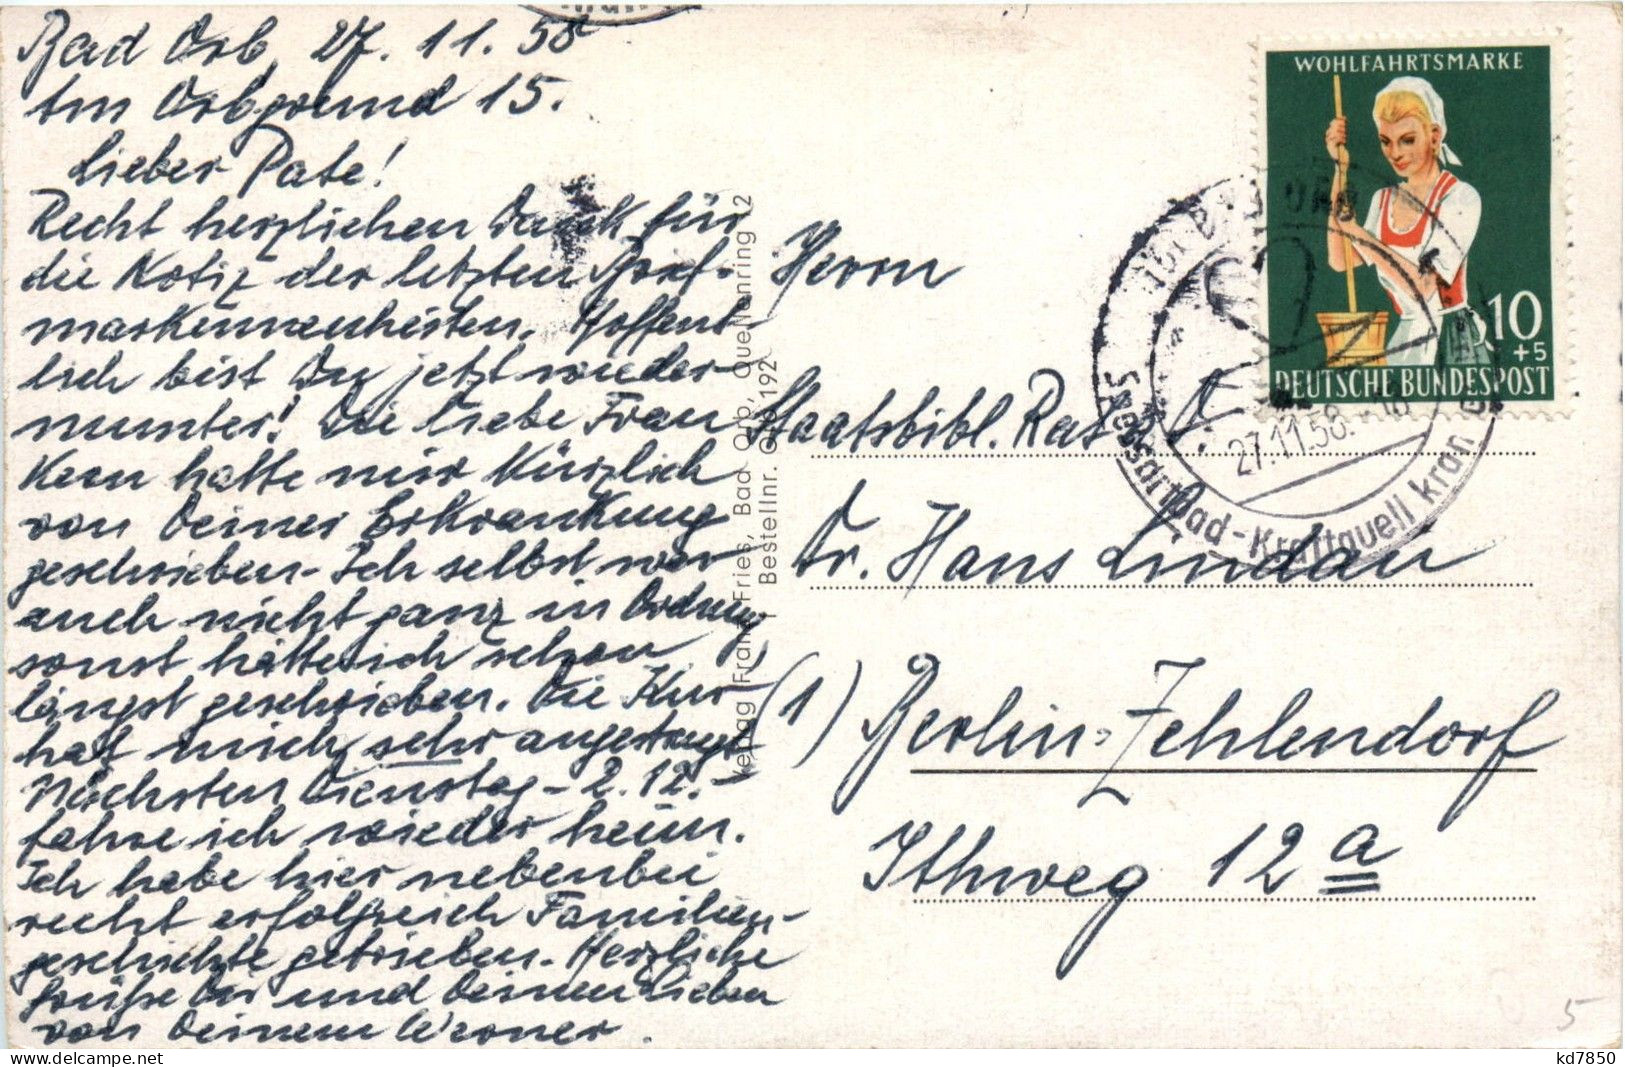 Bad Orb, 27.11.58
Am Orbgrund 15.
Lieber Pate!
Recht herzlichen Dank für
die Notiz der letzten Brief-
markenneuheiten. Hoffent-
lich bist Du jetzt wieder
munter! Die liebe Frau
Kern hatte mir kürzlich
von Deiner Erkrankung
geschrieben. Ich selbst war
auch nicht ganz in Ordnung,
sonst hätte ich schon
längst geschrieben. Die Kur
hat mich sehr angestrengt.
Nächsten Dienstag - 2.12. -
fahre ich wieder heim.
Ich habe hier nebenbei
recht erfolgreich Familien-
geschichte getrieben. Herzliche
Grüße Dir und Deinen Lieben
von Deinem Werner.
Verlag Franz Fries, Bad Orb, Quellenring 12
Bestellnr. Orb 192
WOHLFAHRTSMARKE
10
+5
DEUTSCHE BUNDESPOST
BAD ORB
27.11.58.-18
Spessartbad-Kraftquell
Herrn
Staatsbibl. Rat i. R.
Dr. Hans Lindau
(1) Berlin-Zehlendorf
Ithweg 12 a
5
kd7850